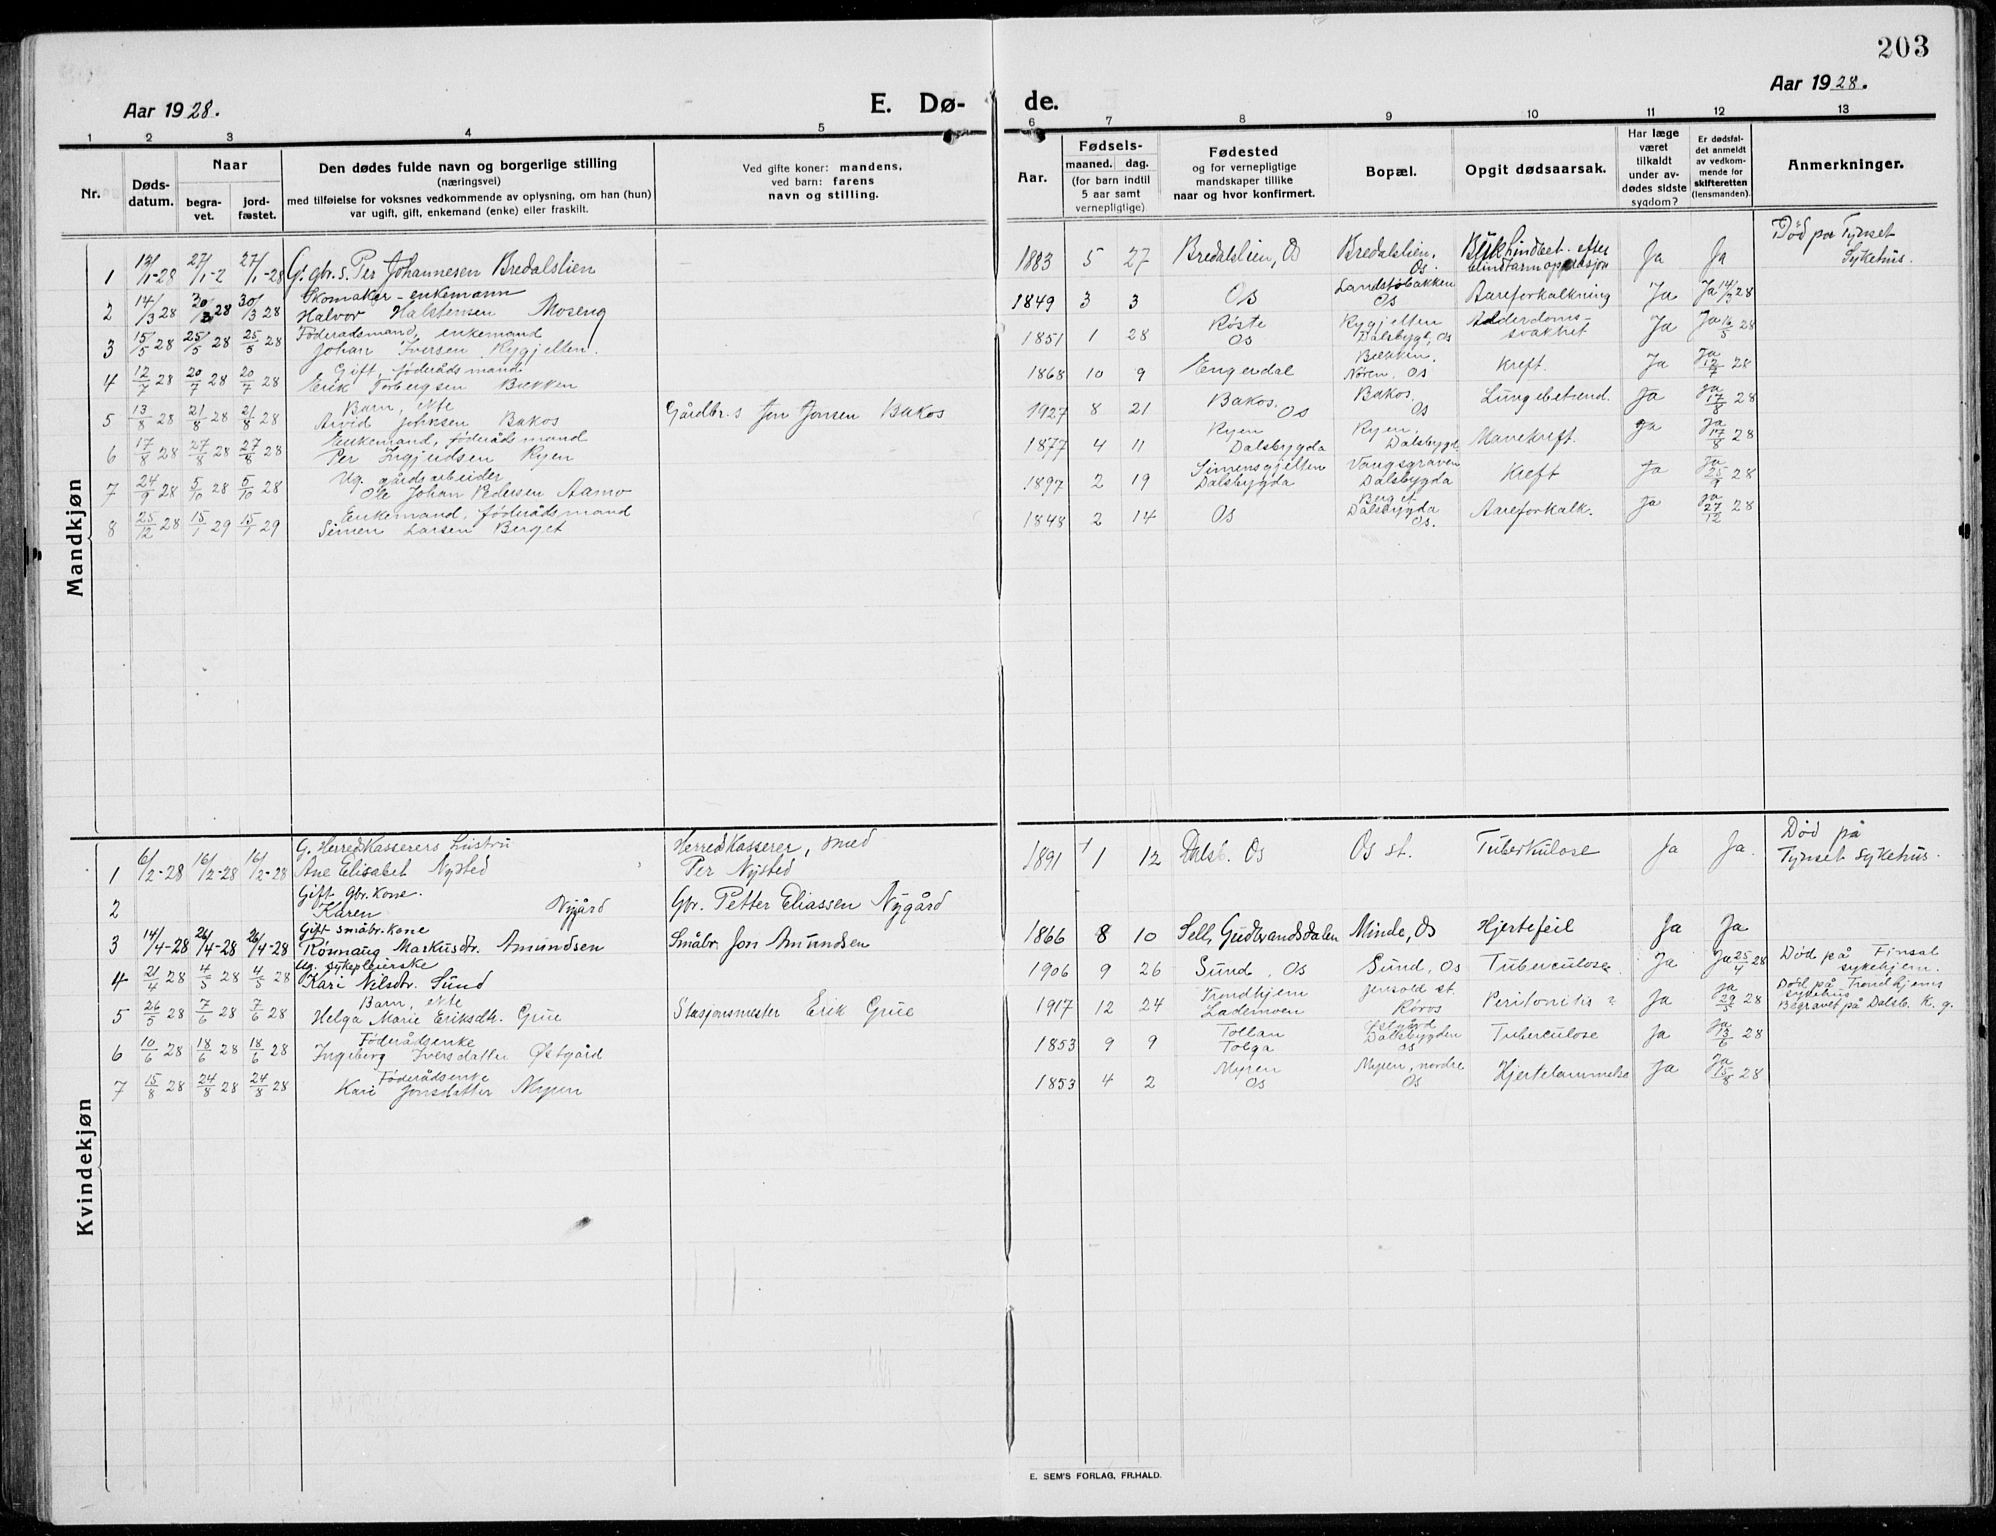 203
Aar 1928.
E. Dø-
de.
Aar 1928.
1 2 3 4 5 6 7 8 9 10 11 12 13
Nr.
Døds-
datum.
Naar
begra-
vet.
jord-
fæstet.
Den dødes fulde navn og borgerlige stilling
(næringsvei)
med tilføielse for voksnes vedkommende av oplysning, om han (hun)
var ugift, gift, enkemand (enke) eller fraskilt.
Ved gifte koner: mandens,
ved barn: farens
navn og stilling.
Aar.
Fødsels-
maaned. dag.
(for barn indtil
5 aar samt
vernepligtige)
Fødested
og for vernepligtige
mandskaper tillike
naar og hvor konfirmert.
Bopæl.
Opgit dødsaarsak.
Har læge
været
tilkaldt
under av-
dødes sidste
sygdom?
Er dødsfal-
det anmeldt
av vedkom-
mende for
skifteretten
(lensmanden).
Anmerkninger.
Mandkjøn
1 13/1-28 27/1-2 27/1-28 G. gbr. s. Per Johannesen Bredalslien 1883 5 27 Bredalslien, Os Bredalslien, Os. efter blindtarmoperasjon Ja Ja Død paa Tynset Sykehus.
2 14/3 28 30/3 28 30/3 28 Skomaker - enkemann
Halvor Halstensen Moseng 1849 3 3 Os Os Aareforkalkning Ja Ja 14/3 28
3 15/5 28 25/5 28 25/5 28 Føderaadsmand, enkemand
Johan Iversen Rygjelten. 1851 1 28 Røste Os Rygjelten Dalsbygd, Os Alderdoms-svakhet Ja Ja 16/5 28
4 12/7 28 20/7 28 20/7 28 Gift, føderådsmand
Erik Torbergsen Bækken 1868 10 9 Engerdal Bækken, Nøren, Os Kreft. Ja Ja 12/7 28
5 13/8 28 21/8 28 21/8 28 Barn, ekte
Arvid Jonsen Bakos Gårdbr. s Jon Jonsen Bakos 1927 8 21 Bakos. Os Bakos. Os Lungebetend. Ja Ja 17/8 28
6 17/8 28 27/8 28 27/8 28 Enkemand, føderådsmand
Per Ingjeldsen Ryen 1877 4 11 Ryen Dalsbygda Ryen, Dalsbygd. Mavekreft. Ja Ja 17/8 28
7 24/9 28 5/10 28 5/10 28 Ug. gårdsarbeider
Ole Johan Pedersen Aamo 1897 2 19 Simensgjelten Dalsbygda Vangsgraven Dalsbygda Kreft Ja Ja 25/9 28
8 25/12 28 15/1 29 15/1 29 Enkemand, føderådsmand
Simen Larsen Berget 1848 2 14 Os Berget Dalsbygda Os. Aareforkalk. Ja Ja 27/12 28
Kvindekjøn
1 6/2-28 16/2-28 16/2-28 G. Herredkasserers hustru
Ane Elisabet Nysted Herredkasserer, smed
Per Nysted 1891 1 12 Dalsb. Os Os st. Tuberkulose Ja Ja. Død på Tynset sykehus.
2 Gift gbr. kone.
Karen Nygård Gbr. Petter Eliassen Nygård
3 14/4-28 26/4-28 26/4-28 Gift småbr. kone
Rønnaug Markusdtr. Amundsen Småbr. Jon Amundsen 1866 8 10 Sell, Gudbrandsdalen Minde, Os Hjertefeil Ja Ja
4 21/4 28 4/5 28 4/5 28 Ug. sykepleierske
Kari Nilsdtr. Sund 1906 9 26 Sund, Os Sund, Os Tuberculose. Ja Ja 25/4 28 Død på Finsal sykehjem.
5 26/5 28 7/6 28 7/6 28 Barn, ekte
Helga Marie Eriksdtr. Grue Stasjonsmester Erik Grue 1917 12 24 Trondhjem Lademoen Jensvold st. Røros Peritonitis ? Ja Ja 29/5 28 Død på Trondhjems sykehus Begravet på Dalsb. K. g.
6 10/6 28 18/6 28 18/6 28 Føderådsenke
Ingeborg Iversdatter Østgård 1853 9 9 Tollan Tolga Østgård Dalsbygden Os Tuberculose Ja Ja 13/6 28
7 15/8 28 24/8 28 24/8 28 Føderådsenke
Kari Jonsdatter Myren 1853 4 2 Myren Os Myren, nordre Os Hjertelammelse Ja Ja 15/8 28
E. SEM'S FORLAG, FR.HALD.